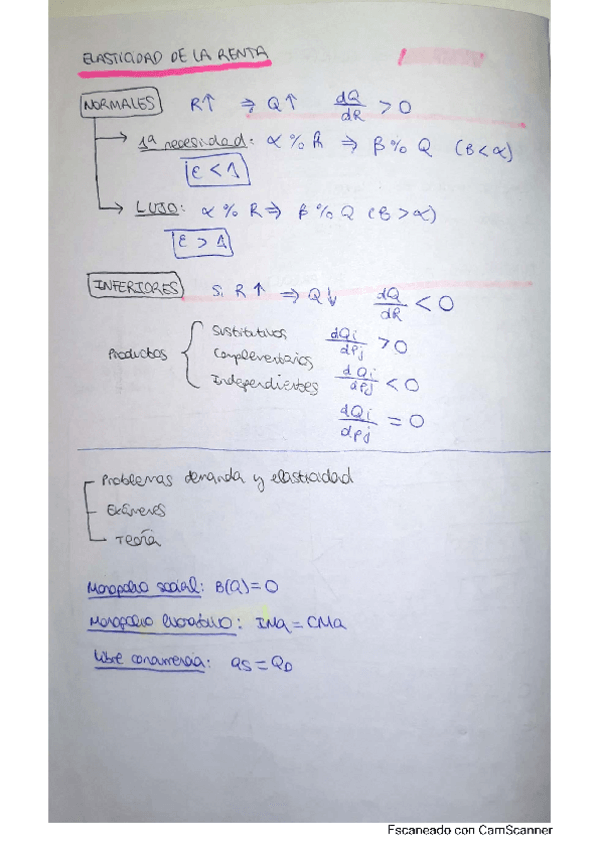 ELASTICIDAD DE LA RENTA
NORMALES R↑ ⇒ Q↑ dQ/dR > 0
1ª necesidad: α % R ⇒ β % Q (β < α)
ε < 1
LUJO: α % R ⇒ β % Q (β > α)
ε > 1
INFERIORES Si R↑ ⇒ Q↓ dQ/dR < 0
Productos
Sustitutivos dQi/dPj > 0
Complementarios dQi/dPj < 0
Independientes dQi/dPj = 0
Problemas demanda y elasticidad
Exámenes
Teoría
Monopolio social: B(Q) = 0
Monopolio lucrativo: IMa = CMa
Libre concurrencia: QS = QD
Escaneado con CamScanner